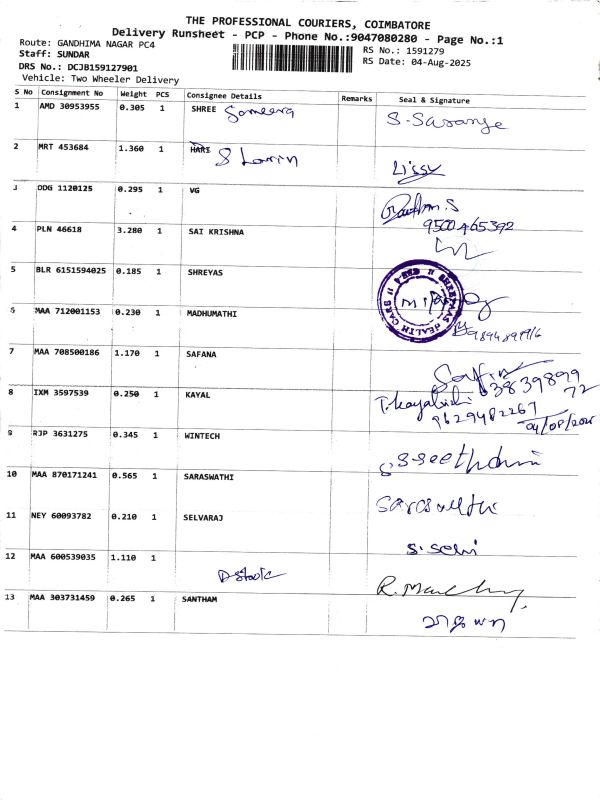 THE PROFESSIONAL COURIERS, COIMBATORE
Delivery Runsheet - PCP - Phone No.:9047080280 - Page No.:1
Route: GANDHIMA NAGAR PC4
Staff: SUNDAR
RS No.: 1591279
DRS No.: DCJB159127901
RS Date: 04-Aug-2025
Vehicle: Two Wheeler Delivery
S No Consignment No Weight PCS Consignee Details Remarks Seal & Signature
1 AMD 30953955 0.305 1 SHREE Sameera
S. Saranya
2 MRT 453684 1.360 1 HARI S Lavin
Lissy
3 ODG 1120125 0.295 1 VG
9500465392
4 PLN 46618 3.280 1 SAI KRISHNA
5 BLR 6151594025 0.185 1 SHREYAS
SHREYAAS HEALTH CARE
6 MAA 712001153 0.230 1 MADHUMATHI
7 MAA 708500186 1.170 1 SAFANA
8 IXM 3597539 0.250 1 KAYAL
9629482267
04/08/2025
9 RJP 3631275 0.345 1 WINTECH
10 MAA 870171241 0.565 1 SARASWATHI
Saraswathi
11 NEY 60093782 0.210 1 SELVARAJ
S. Selvi
12 MAA 600539035 1.110 1
13 MAA 303731459 0.265 1 SANTHAM